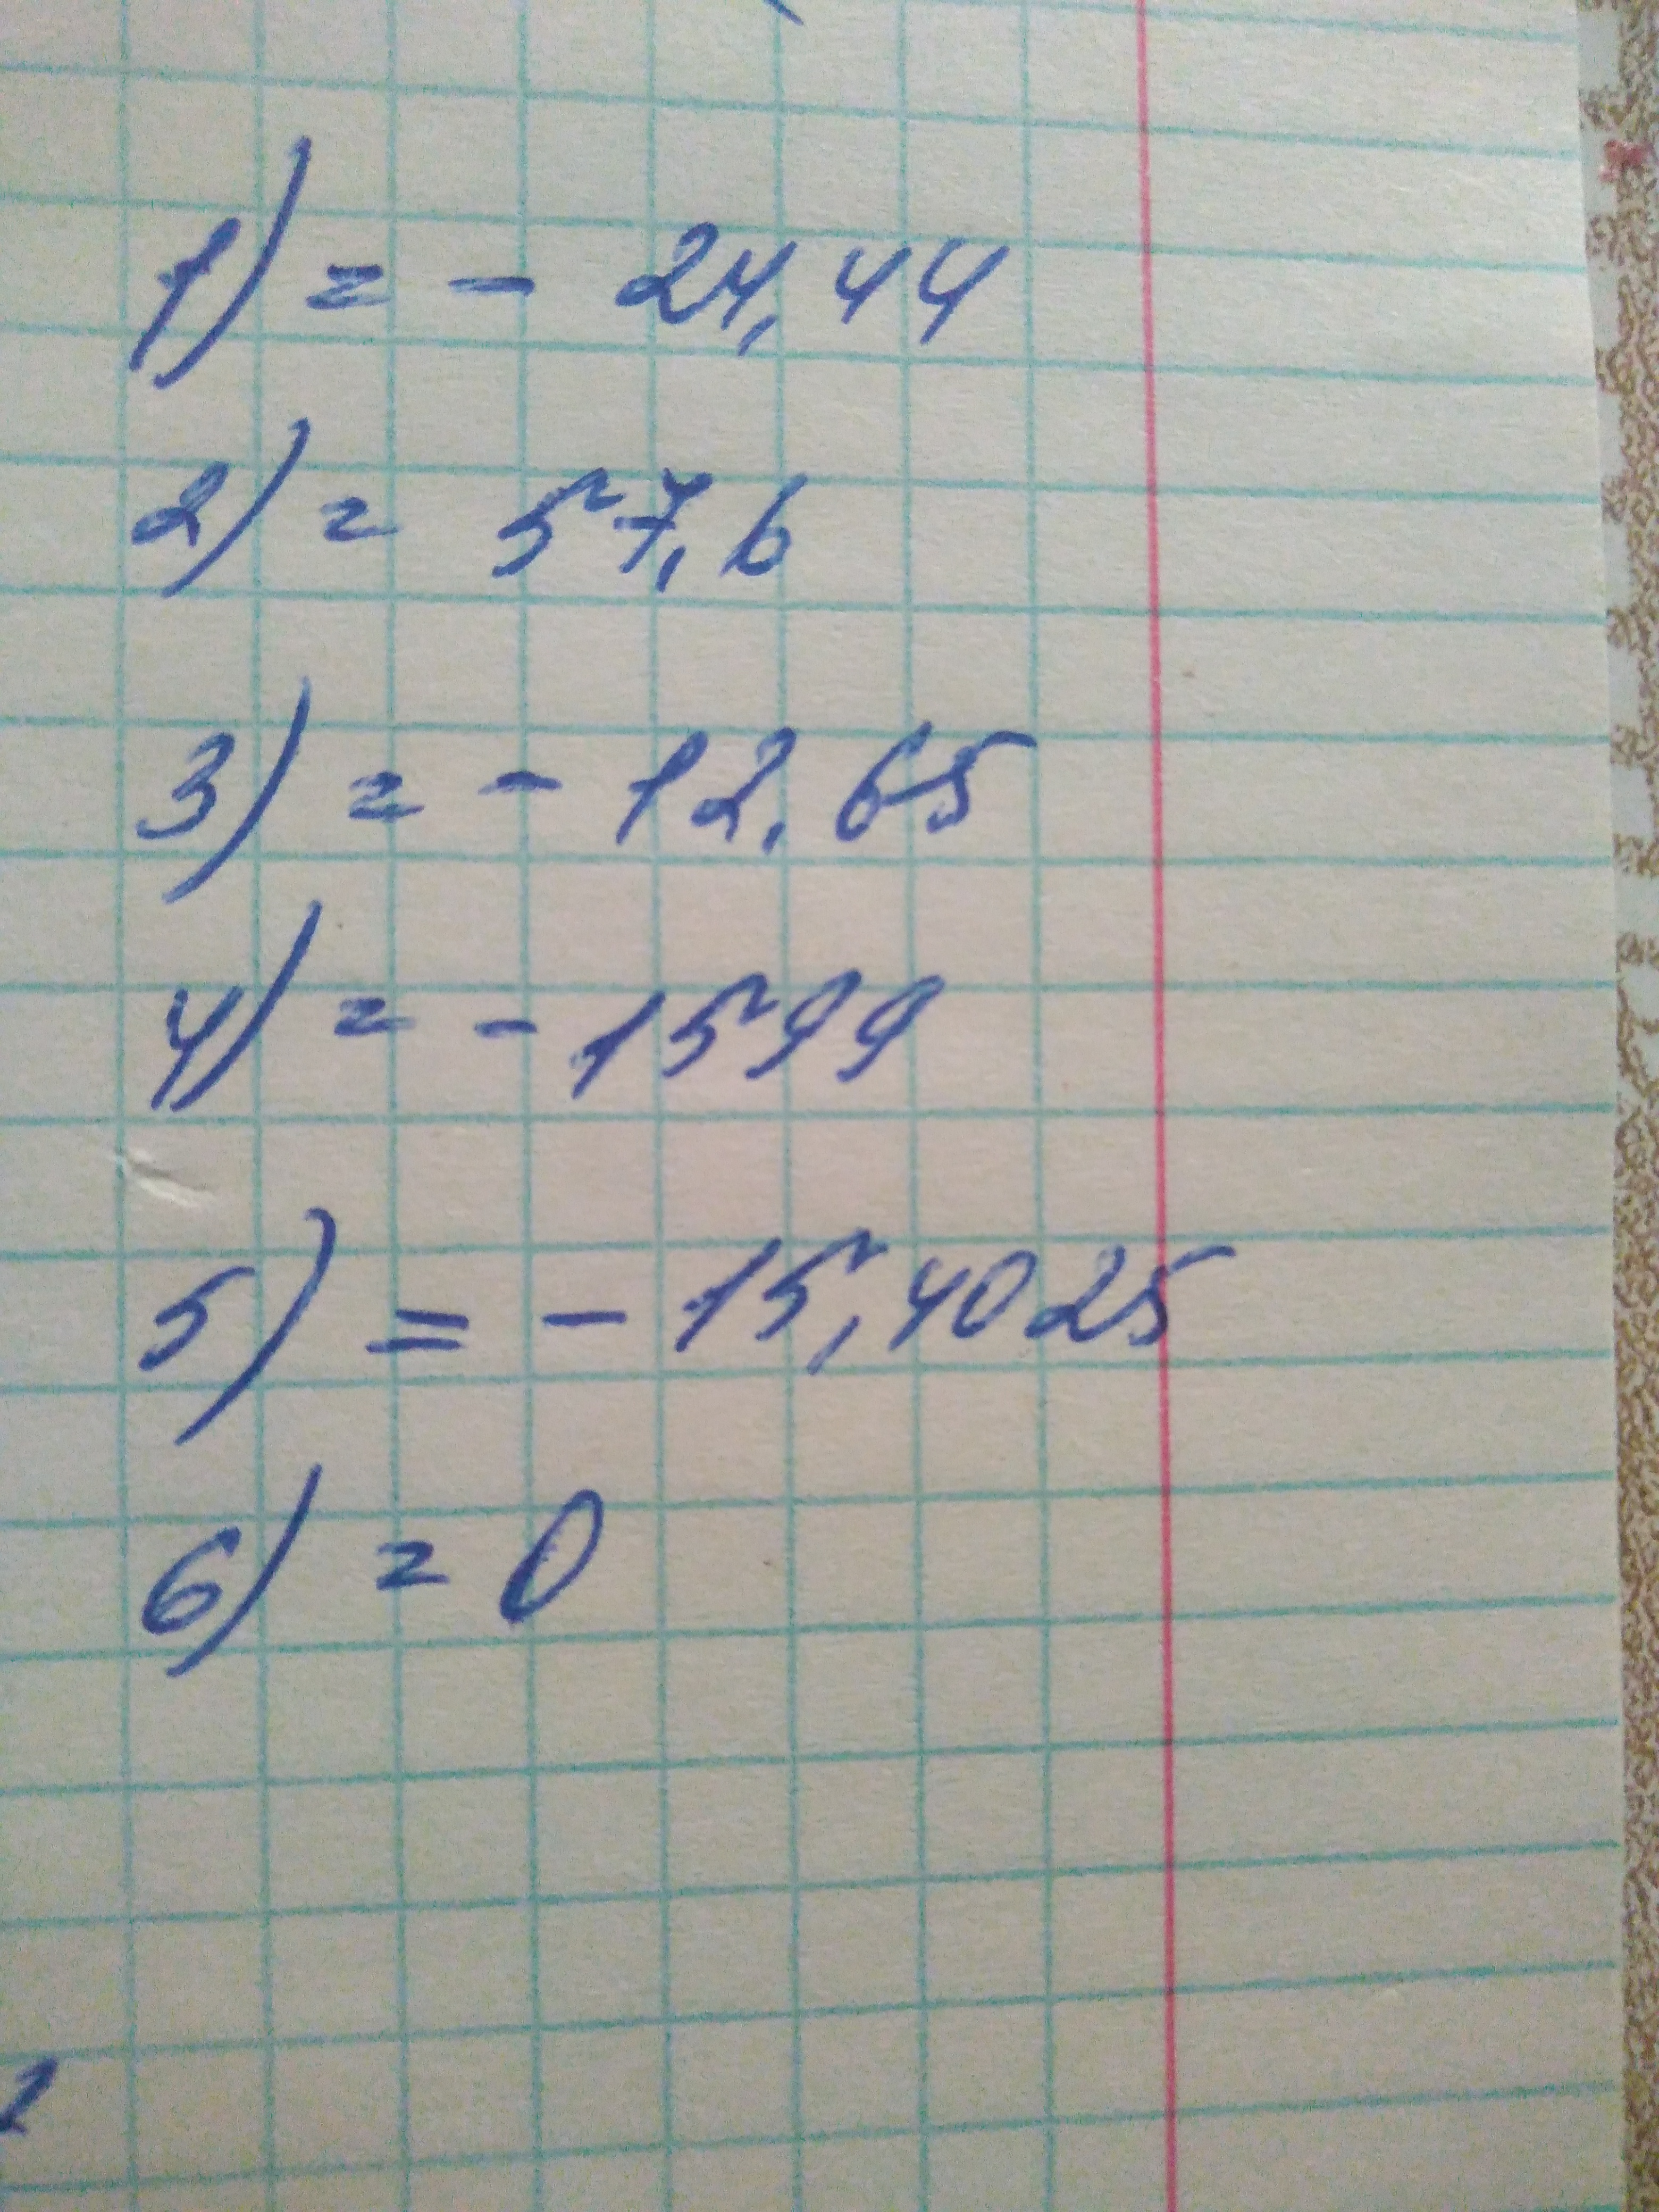 1) = - 24,44
2) = 57,6
3) = - 12,65
4) = - 1599
5) = - 15,4025
6) = 0